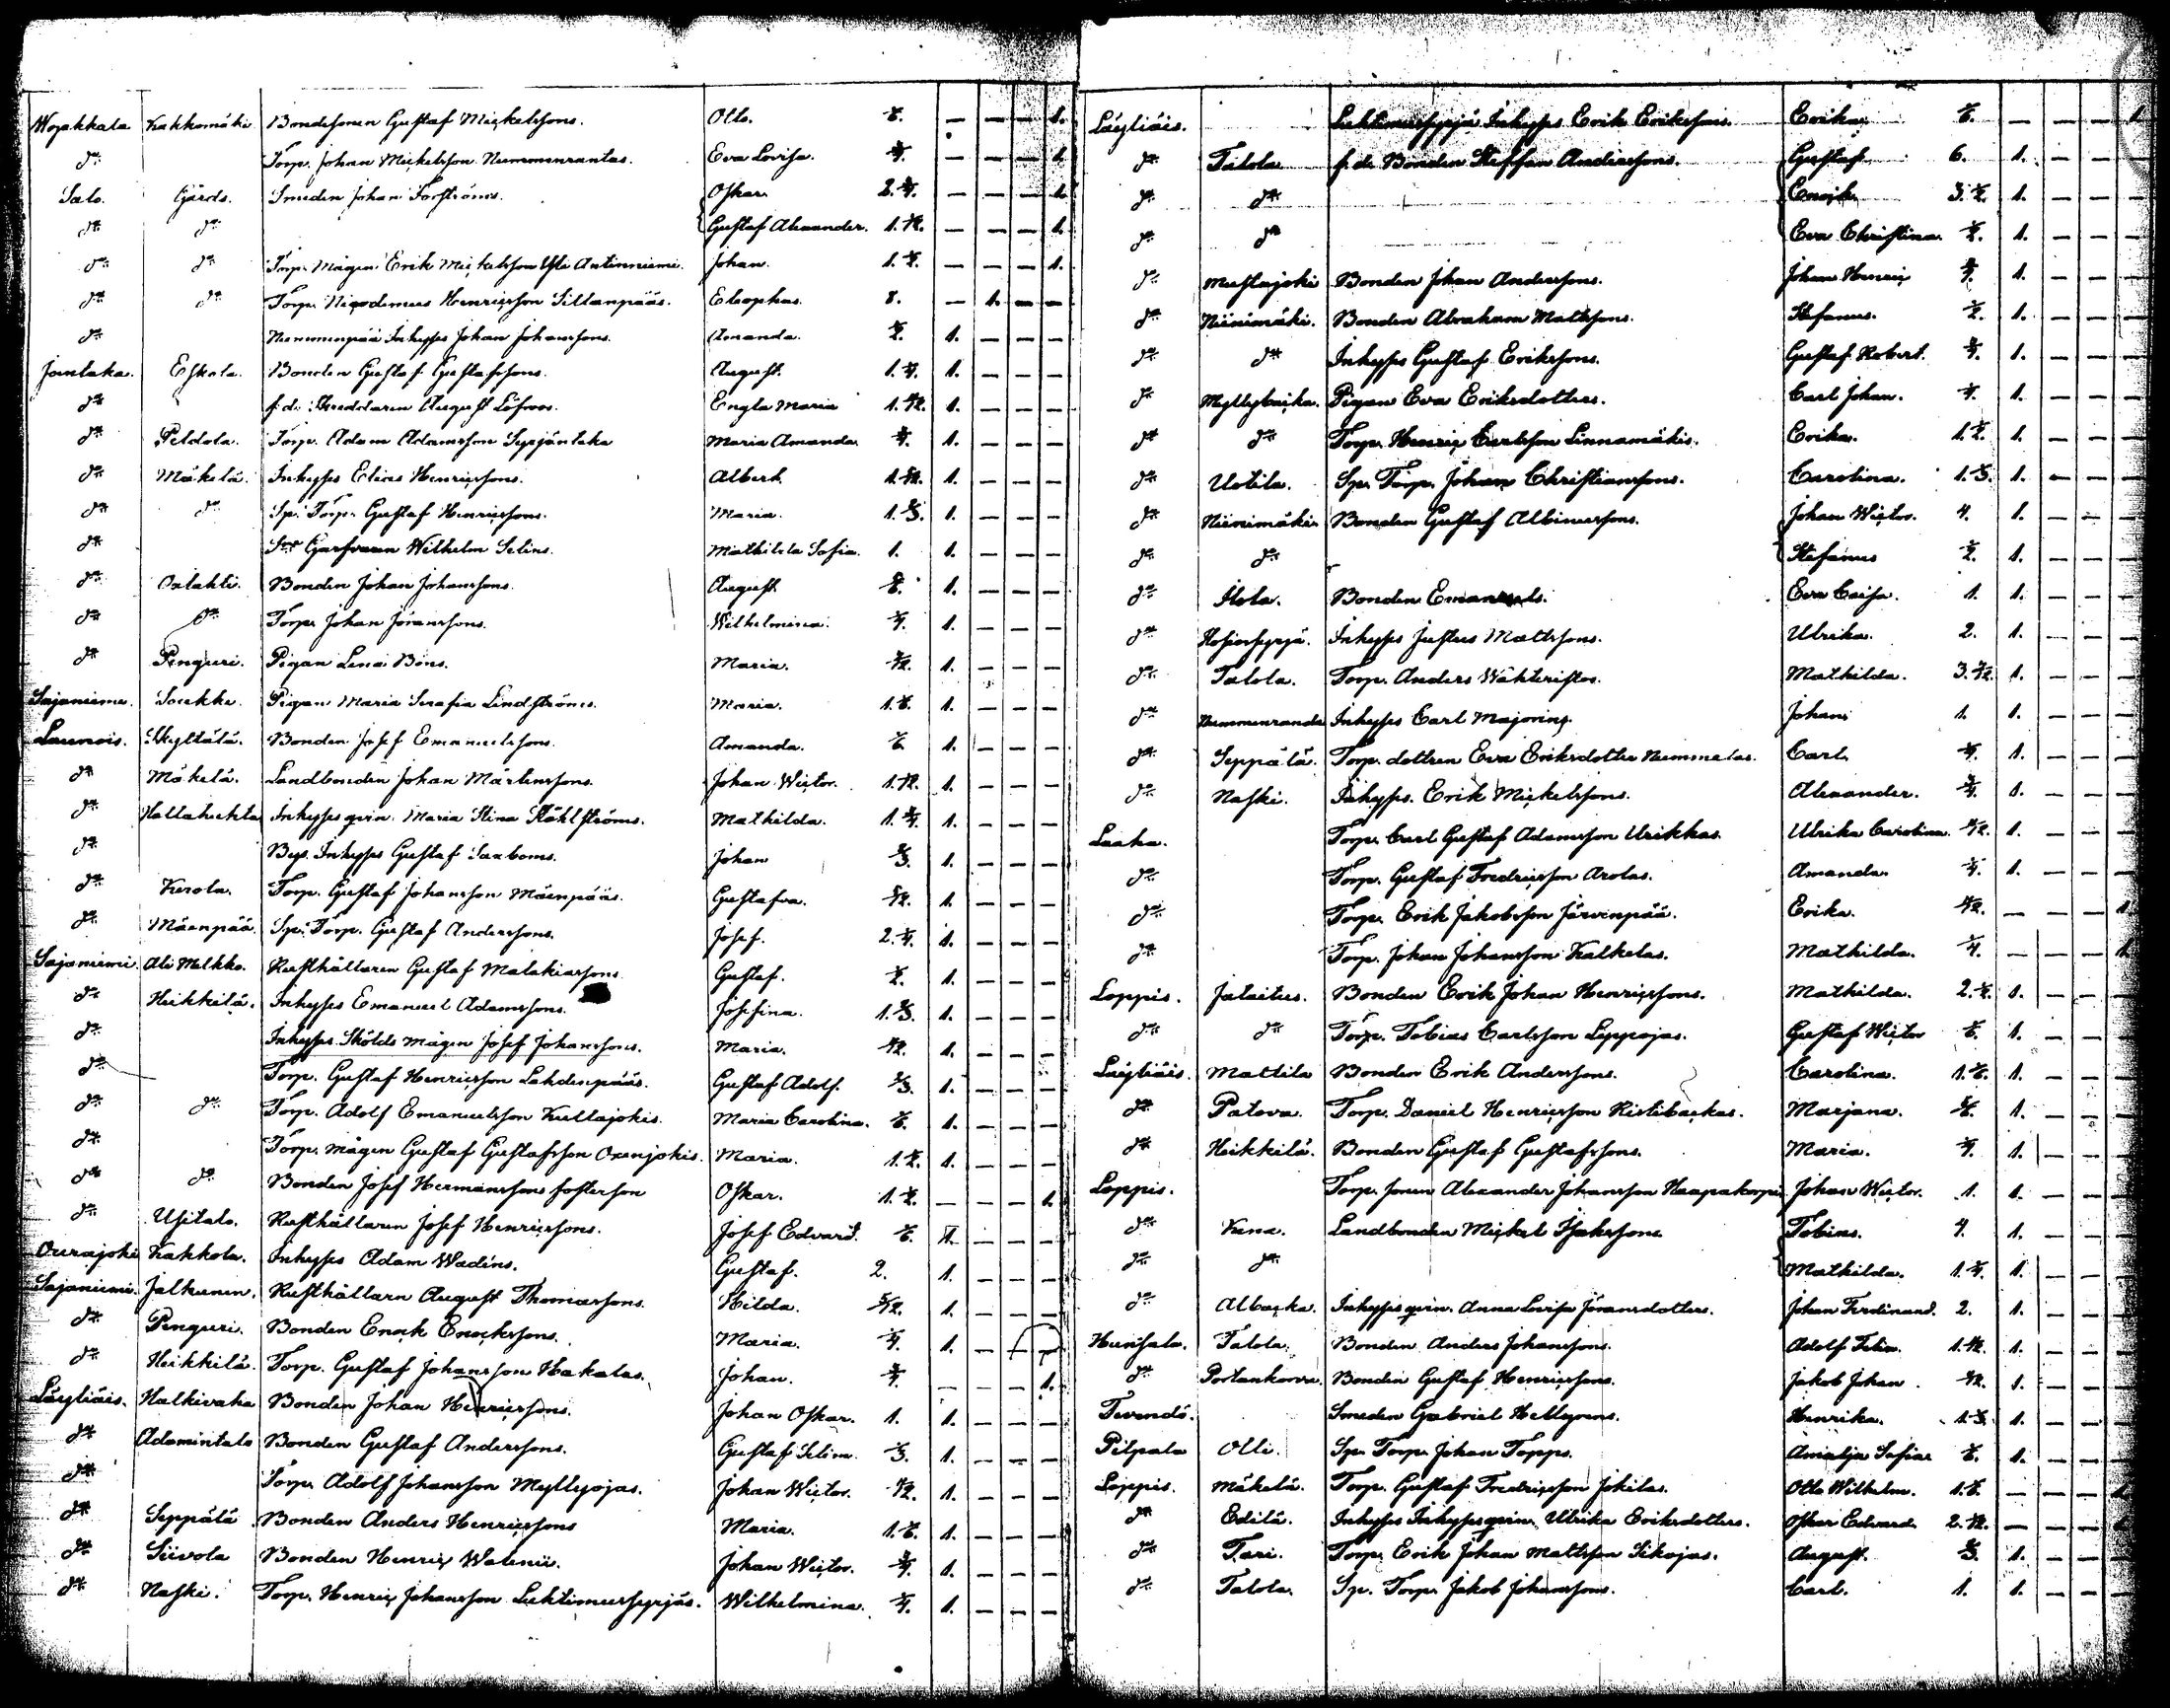 Wojakkala Kakkomäki Bondesonen Gustaf Mickelssons. Otto. — — — 1.
d:o Torp. Johan Mickelsson Nummenrantas. Eva Lovisa. 3/4. — — — 1.
Salo Gårds. Smeden Johan Forströms. Oskar 2.3/4. — — — 1.
d:o d:o Gustaf Alexander. — — — 1.
d:o d:o Torp. Mågen Erik Mickelsson Antinniemi. Johan. — — — 1.
d:o d:o Torp. Nicodemus Henricsson Sillanpääs. Eleophas. 8. — 1. — —
d:o Nummenpää Inhyses Johan Johanssons. Amanda. 1/2. 1. — — —
Jantaka. Eskola. Bonden Gustaf Gustafssons. August. 1. — — —
d:o f.d. Skreddaren August Löfroos. Engla Maria 1. — — —
d:o Peldola. Torp. Adam Adamsson Syrjäntaka Maria Amanda 3/4. 1. — — —
d:o Mäkelä. Inhyses Elias Henricssons. Albert. 1. — — —
d:o d:o Sp. Torp. Gustaf Henricssons. Maria. 1. — — —
d:o Garfvaren Wilhelm Selins. Mathilda Sofia. 1. 1. — — —
d:o Oxlahti. Bonden Johan Johanssons. August. 1. — — —
d:o d:o Torp. Johan Göranssons. Wilhelmina. 1/4. 1. — — —
d:o Penguri. Pigan Lena Böns. Maria. 1. — — —
Sajaniemi. Soukka. Pigan Maria Serafia Lindströms. Maria. 1. — — —
Launois. Skyttälä. Bonden Josef Emanuelssons. Amanda. 1. — — —
d:o Mäkelä. Landbonden Johan Mårtenssons. Johan Wictor. 1. — — —
d:o Hallahuhta Inhyses qvin. Maria Stina Ståhlströms. Mathilda. 1.3/4. 1. — — —
d:o Bys. Inhyses Gustaf Saxboms. Johan 2/3. 1. — — —
d:o Kerola. Torp. Gustaf Johansson Mäenpääs. Gustafva. 1. — — —
d:o Mäenpää Sp. Torp. Gustaf Anderssons. Josef. 2.1/4. 1. — — —
Sajaniemi. Ali Melkko. Rusthållaren Gustaf Malakiassons Gustaf. 1/2. 1. — — —
d:o Heikkilä. Inhyses Emanuel Adamssons. Josefina. 1. — — —
d:o Inhyses Skölds mågen Josef Johanssons. Maria. 1. — — —
d:o Torp. Gustaf Henricsson Lahdenpääs. Gustaf Adolf. 1. — — —
d:o d:o Torp. Adolf Emanuelsson Kultajokis. Maria Carolina. 1. — — —
d:o Torp. mågen Gustaf Gustafsson Oxenjokis. Maria. 1.1/2. 1. — — —
d:o d:o Bonden Josef Hermanssons fosterson Oskar. 1.1/2. — — — 1.
d:o Ylitalo. Rusthållaren Josef Henricssons. Josef Edvard. 1. — — —
Ourajoki Kakkola. Inhyses Adam Wadéns. Gustaf. 2. 1. — — —
Sajaniemi. Jalkunen. Rusthållarn August Thomassons. Hilda. 5/12. 1. — — —
d:o Penguri. Bonden Enock Enockssons. Maria. 1/4. 1. — — —
d:o Heikkilä. Torp. Gustaf Johansson Hakalas. Johan. 3/4. — — — 1.
Läyliäis. Halkivaha Bonden Johan Henricssons. Johan Oskar. 1. 1. — — —
d:o Adamintalo Bonden Gustaf Anderssons. Gustaf Selim. 1/3. 1. — — —
d:o Torp. Adolf Johansson Myllyojas. Johan Wictor. 1. — — —
d:o Seppälä Bonden Anders Henricssons Maria. 1. — — —
d:o Siivola Bonden Henric Walenii. Johan Wictor. 3/4. 1. — — —
d:o Naski. Torp. Henric Johansson Luhtimussyrjäs. Wilhelmina. 1/4. 1. — — —
Läyliäis. Luhtimussyrjä Inhyses Erik Erikssons. Erika. — — — 1
d:o Talola f.d. Bonden Steffan Anderssons. Gustaf. 6. 1. — — —
d:o d:o Enock. 3.1/2. 1. — — —
d:o d:o Eva Christina. 1/2. 1. — — —
d:o Mustajoki Bonden Johan Anderssons. Johan Henric 3/4. 1. — — —
d:o Niinimäki. Bonden Abraham Matssons. Stefanus. 1/2. 1. — — —
d:o d:o Inhyses Gustaf Erikssons. Gustaf Robert. 3/4. 1. — — —
d:o Myllybacka. Pigan Eva Eriksdotters. Carl Johan. 1/4. 1. — — —
d:o d:o Torp. Henric Carlsson Linnamäkis. Erika. 1.1/2. 1. — — —
d:o Uotila. Sp. Torp. Johan Christianssons. Carolina. 1.1/3. 1. — — —
d:o Niinimäki Bonden Gustaf Albinussons. Johan Wictor. 4. 1. — — —
d:o d:o Stefanus 1/2. 1. — — —
d:o Ilola. Bonden Emanuels. Eva Caisa. 1. 1. — — —
d:o Inhyses Justus Mattssons. Ulrika. 2. 1. — — —
d:o Talola. Torp. Anders Wähteristos. Mathilda. 1. — — —
d:o Nummenranda Inhyses Carl Majorins. Johan 1. 1. — — —
d:o Seppälä. Torp. dottren Eva Eriksdotter Nummelas. Carl. 3/4. 1. — — —
d:o Naski. Inhyses. Erik Mickelssons. Alexander. 3/4. 1. — — —
Laaha. Torp. Carl Gustaf Adamsson Urikkas. Ulrika Carolina. 1. — — —
d:o Torp. Gustaf Fredricsson Arolas. Amanda. 1/4. 1. — — —
d:o Torp. Erik Jakobsson Järvinpää. Erika. — — — 1
d:o Torp. Johan Johansson Kalkelas. Mathilda. 1/4. — — — 1
Loppis. Jataitus. Bonden Erik Johan Henricssons. Mathilda. 2.1/2. 1. — — —
d:o d:o Torp. Tobias Carlsson Leppojas. Gustaf Wictor 1. — — —
Läyliäis. Mattila Bonden Erik Anderssons. Carolina. 1. — — —
d:o Patova. Torp. Daniel Henricsson Ristibackas. Marjana. 5/6. 1. — — —
d:o Heikkilä. Bonden Gustaf Gustafssons. Maria. 1/4. 1. — — —
Loppis. Torp. sonen Alexander Johansson Haapakorpis Johan Wictor. 1. 1. — — —
d:o Kena. Landbonden Mickel Isakssons. Tobias. 4. 1. — — —
d:o d:o Mathilda. 1.1/4. 1. — — —
d:o Albacka Inhyses qvin. Anna Lovisa Göransdotters. Johan Ferdinand. 2. 1. — — —
Hunsala. Talola. Bonden Anders Johanssons. Adolf Felix. 1. — — —
d:o Portankorva. Bonden Gustaf Henricssons. Jakob Johan. 1. — — —
Tevändö. Smeden Gabriel Hellgrens. Henrika. 1. — — —
Pilpala Olli. Sp. Torp. Johan Topps. Amalja Sofia 1. — — —
Loppis. Mäkelä. Torp. Gustaf Fredricsson Jokilas. Otto Wilhelm. — — — 1
d:o Edilä. Inhyses Inhysesqvin Ulrika Eriksdotters. Oskar Edvard. — — — 1
d:o Tari. Torp. Erik Johan Matsson Sikojas. August. 2/3. 1. — — —
d:o Talola. Sp. Torp. Jakob Johanssons. Carl. 1. 1. — — —